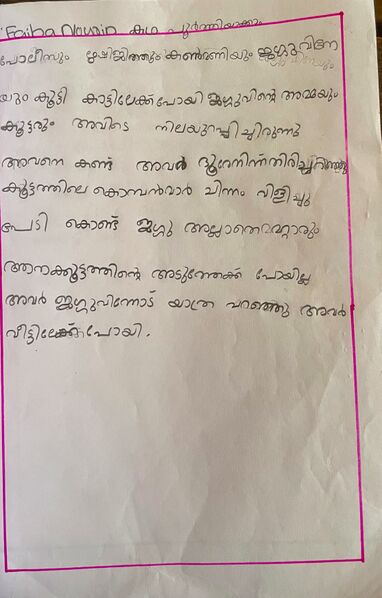 Faiha Nourin കഥ പൂർത്തിയാക്കാം
പോലീസും ഋഷിജിത്തും കൺമണിയും ജഗ്ഗുവിനേ
യും കൂട്ടി കാട്ടിലേക്ക് പോയി ജഗ്ഗുവിന്റെ അമ്മയും
കൂട്ടരും അവിടെ നിലയുറപ്പിച്ചിരുന്നു
അവനെ കണ്ട് അവർ ദൂരേനിന്ന് തിരിച്ചറിഞ്ഞു
കൂട്ടത്തിലെ കൊമ്പൻവാർ ചിന്നം വിളിച്ചു
പേടി കൊണ്ട് ജഗ്ഗു അല്ലാതെ മറ്റാരും
ആനക്കൂട്ടത്തിന്റെ അടുത്തേക്ക് പോയില്ല
അവർ ജഗ്ഗുവിന്നോട് യാത്ര പറഞ്ഞു അവർ
വീട്ടിലേക്ക് പോയി.